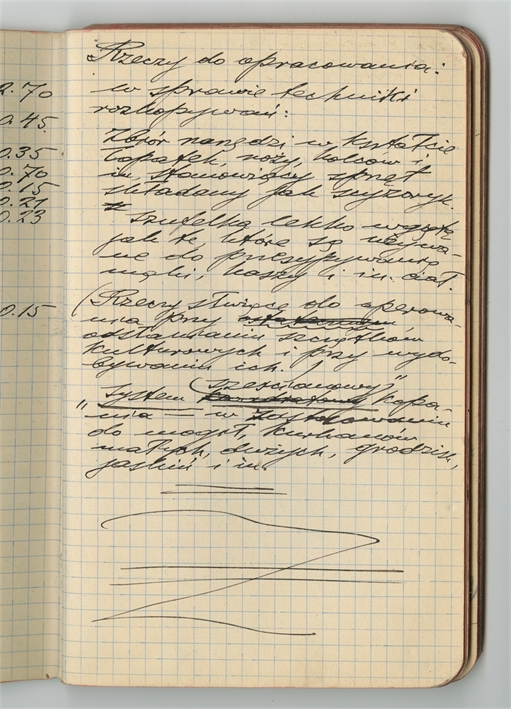 2.70
0.45
0.35
0.70
0.15
0.21
0.23
0.15
Rzeczy do opracowania:
w sprawie techniki
rozkopywań:
Zbiór narzędzi w kształcie
łopatek, noży, kolców i
in. stanowiący sprzęt
składany jak scyzoryk.
Szufelka lekko wygięta
jak te, które są używa-
ne do przesypywania
mąki, kaszy i in. ciał.
(Rzeczy służące do operowa-
nia przy
odsłanianiu szczątków
kulturowych i przy wydo-
bywaniu ich.
(sześcianowy)"
"System kopa-
nia — w zastosowaniu
do mogił, kurhanów
małych, dużych, grodzisk,
jaskiń i in.